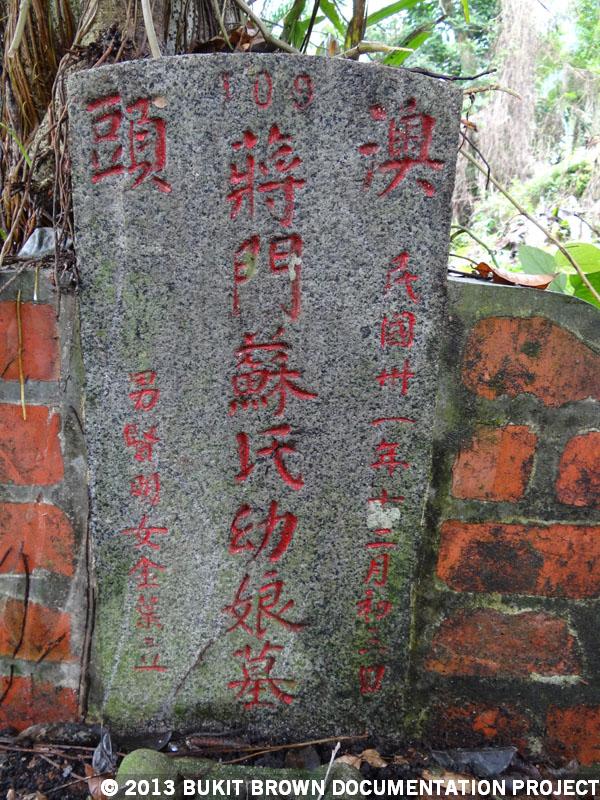 109
澳頭
民國卅一年十二月初二日
蔣門蘇氏幼娘墓
男賢明女金葉立
© 2013 BUKIT BROWN DOCUMENTATION PROJECT